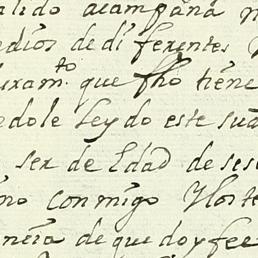 alido acampaña
edios de di ferentes
uram.to que fho tiene
edole Leydo este sua
ser de Edad de ses
mo conmigo
de que doy fee